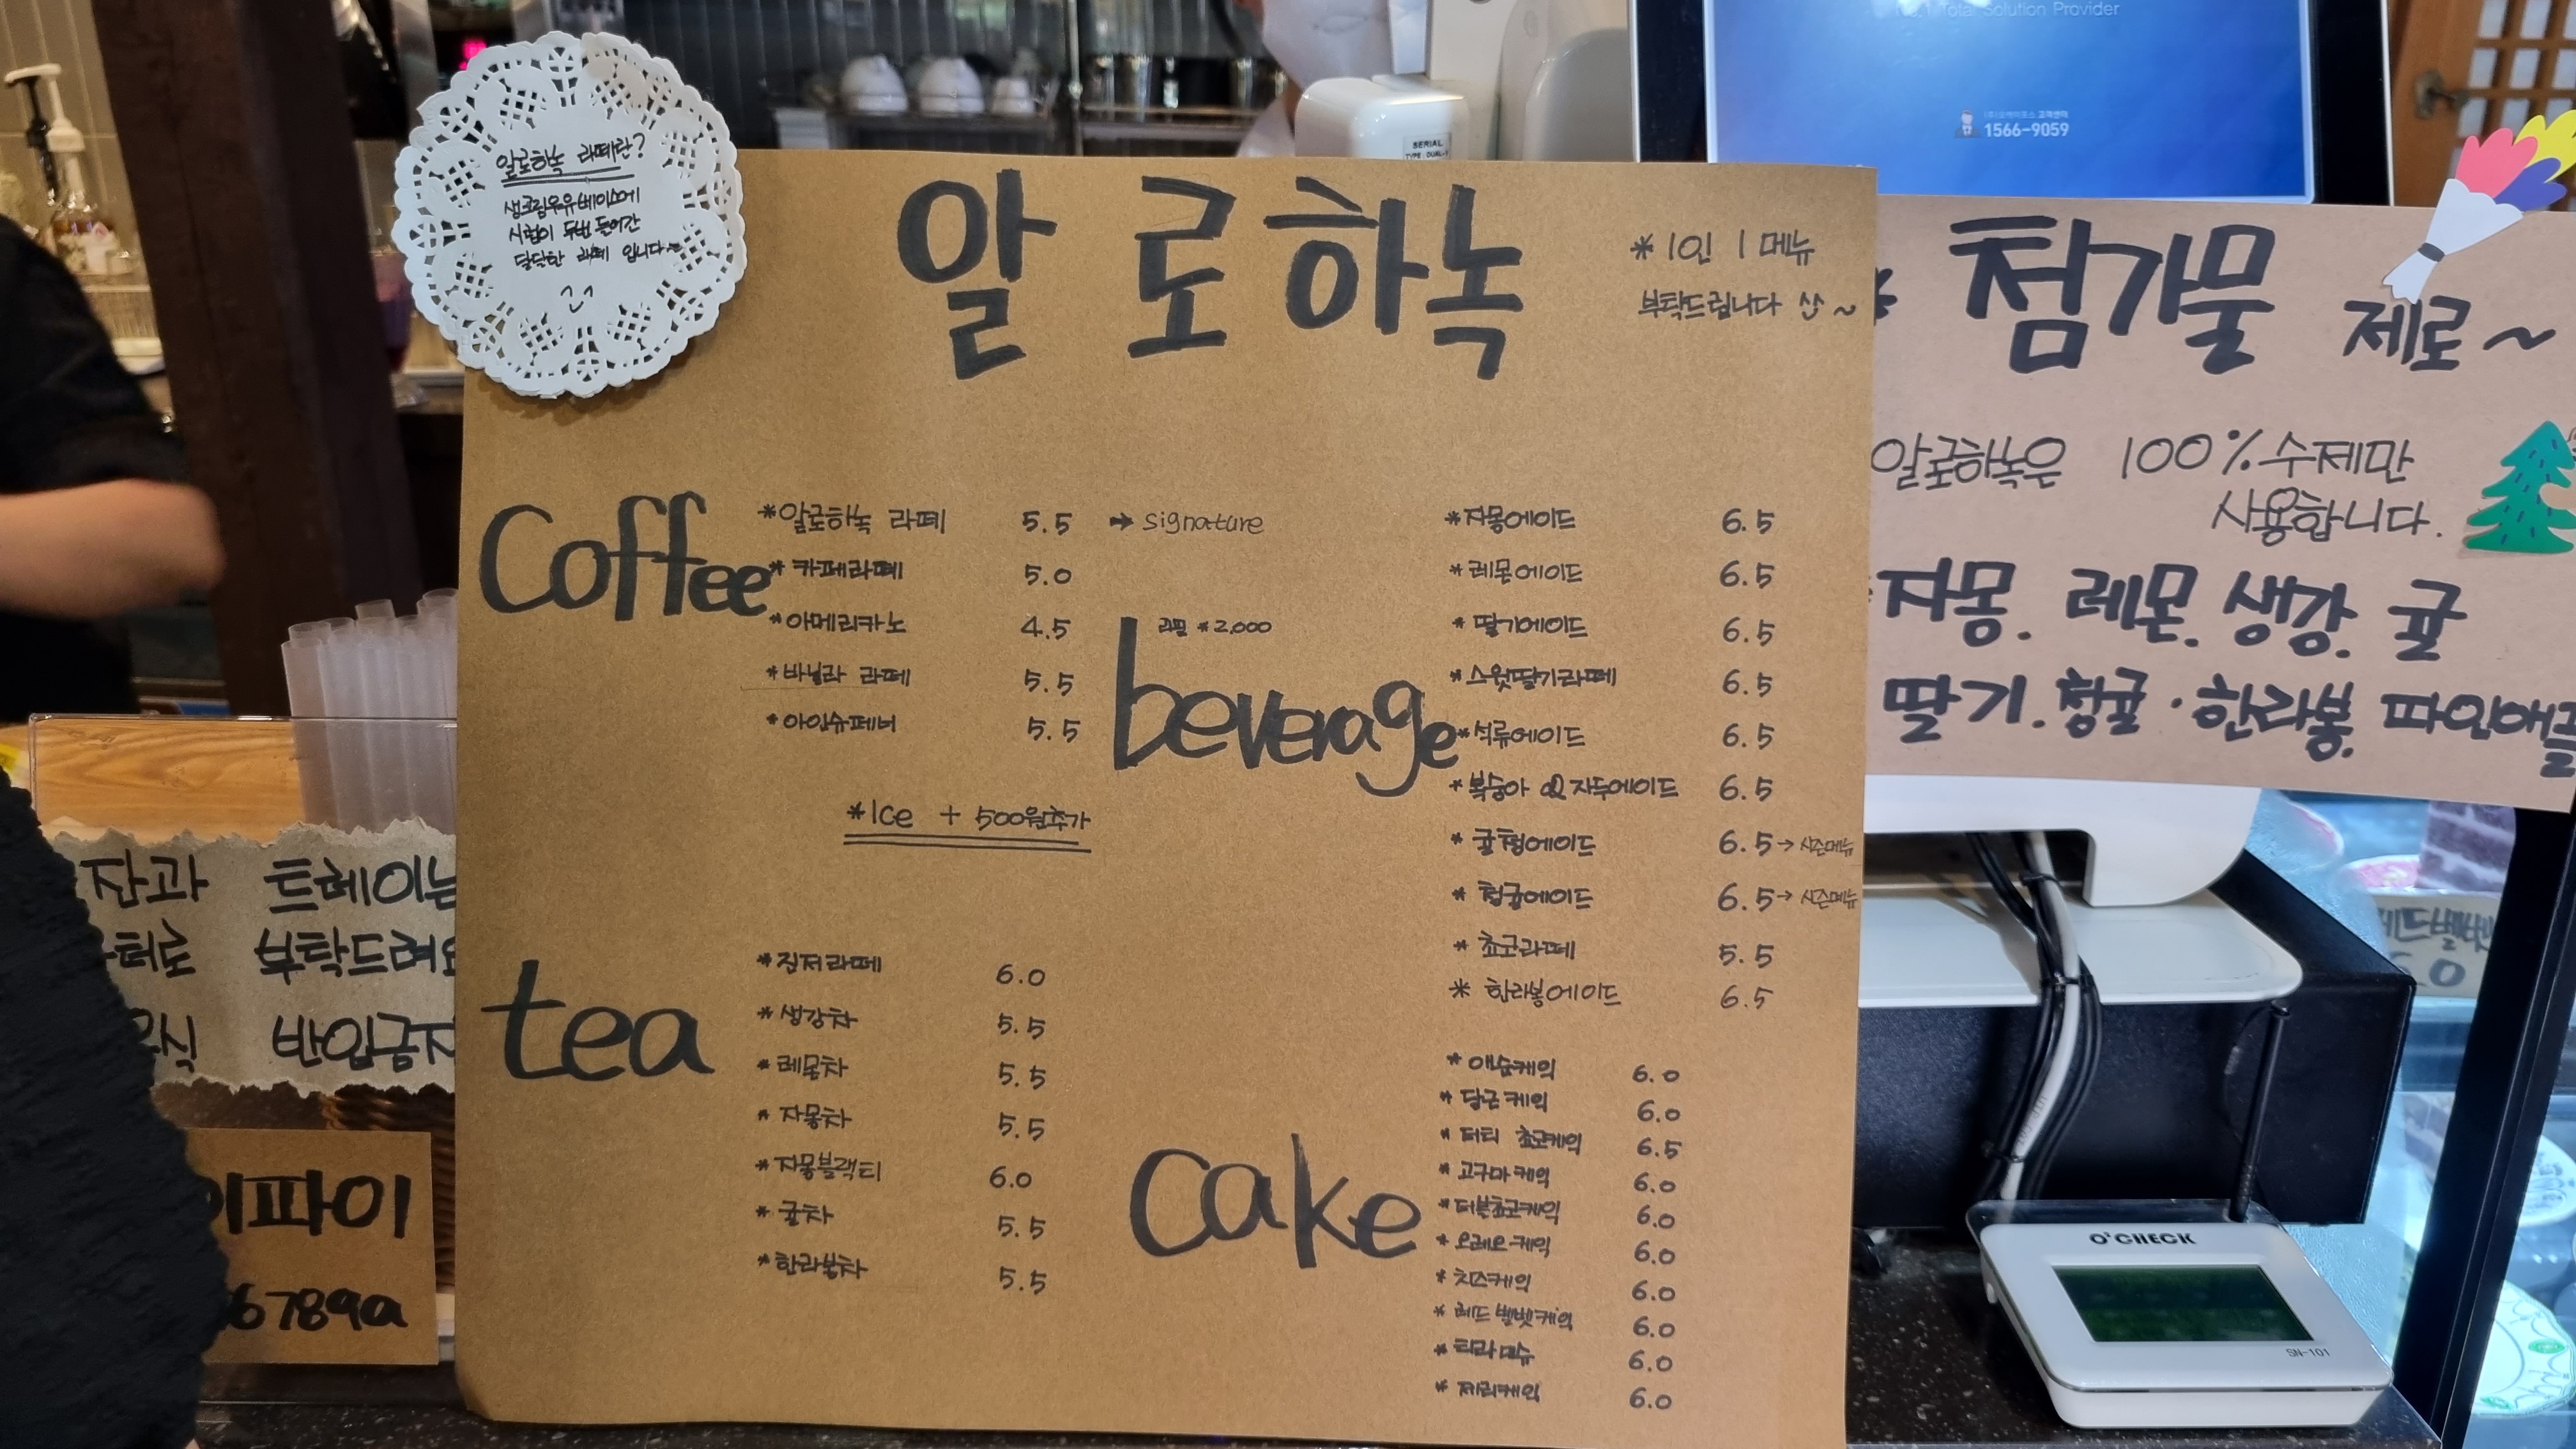 알로하녹 라떼란?
생크림우유베이스에
시럽이 두번 들어간
달달한 라떼 입니다~
알로하녹
* 1인 1메뉴
부탁드립니다 ^^ ~
Coffee
*알로하녹 라떼 5.5 → signature
*카페라떼 5.0
*아메리카노 4.5
*바닐라 라떼 5.5
*아인슈페너 5.5
*Ice + 500원추가
tea
*진저라떼 6.0
*생강차 5.5
*레몬차 5.5
*자몽차 5.5
*자몽블랙티 6.0
*귤차 5.5
*한라봉차 5.5
beverage
리필 *2,000
*자몽에이드 6.5
*레몬에이드 6.5
*딸기에이드 6.5
*스윗딸기라떼 6.5
*석류에이드 6.5
*복숭아 or 자두에이드 6.5
*귤청에이드 6.5 → 시즌메뉴
*청귤에이드 6.5 → 시즌메뉴
*초코라떼 5.5
*한라봉에이드 6.5
cake
*애슐케익 6.0
*당근케익 6.0
*더티 초코케익 6.5
*고구마케익 6.0
*더블초코케익 6.0
*오레오케익 6.0
*치즈케익 6.0
*레드벨벳케익 6.0
*티라미슈 6.0
6.0
* 첨가물 제로~
알로하녹은 100% 수제만
사용합니다.
자몽. 레몬. 생강. 귤
딸기. 청귤. 한라봉. 파인애플
잔과 트레이는
부탁드려요
반입금지
이파이
6789a
No.1 Total Solution Provider
고객센터
1566-9059
SERIAL
레드벨벳
O'CHECK
SN-101